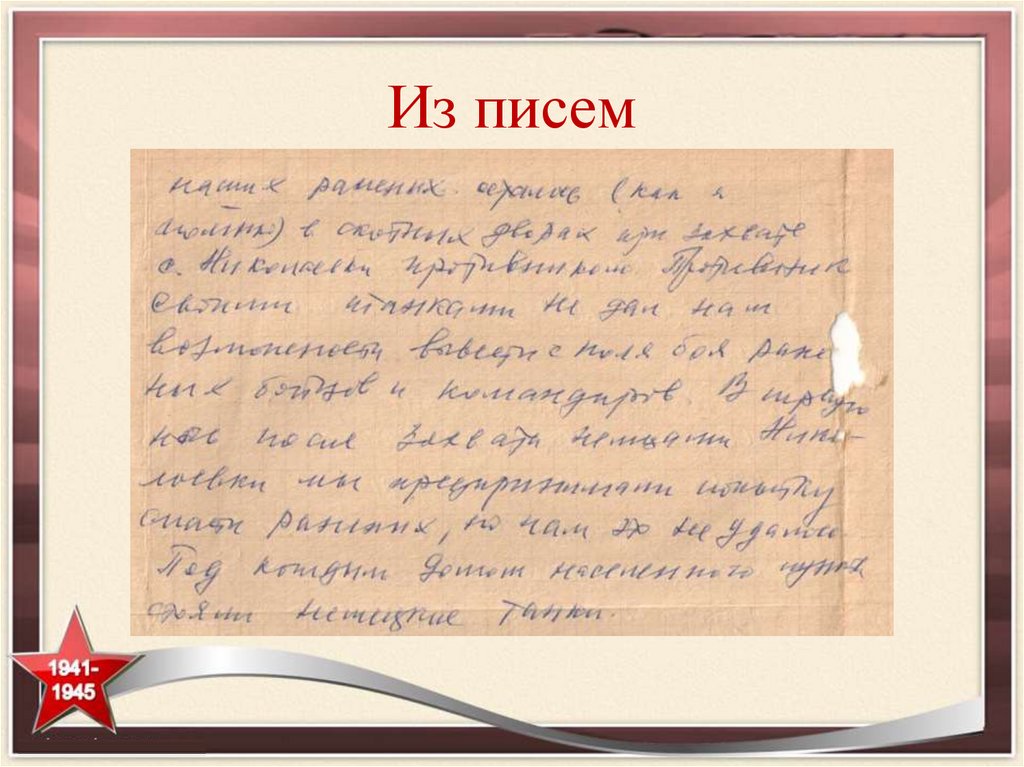 Из писем
наших раненых осталось (как я
помню) в скотных дворах при захвате
с. Николаевки противником. Противник
своими танками не дал нам
возможности вывести с поля боя ране
ных бойцов и командиров. В
после захвата немцами Нико-
лаевки мы предпринимали попытку
спасти раненых, но нам это не удалось
Под каждым домом населенного пункта
стояли немецкие танки.
1941-
1945